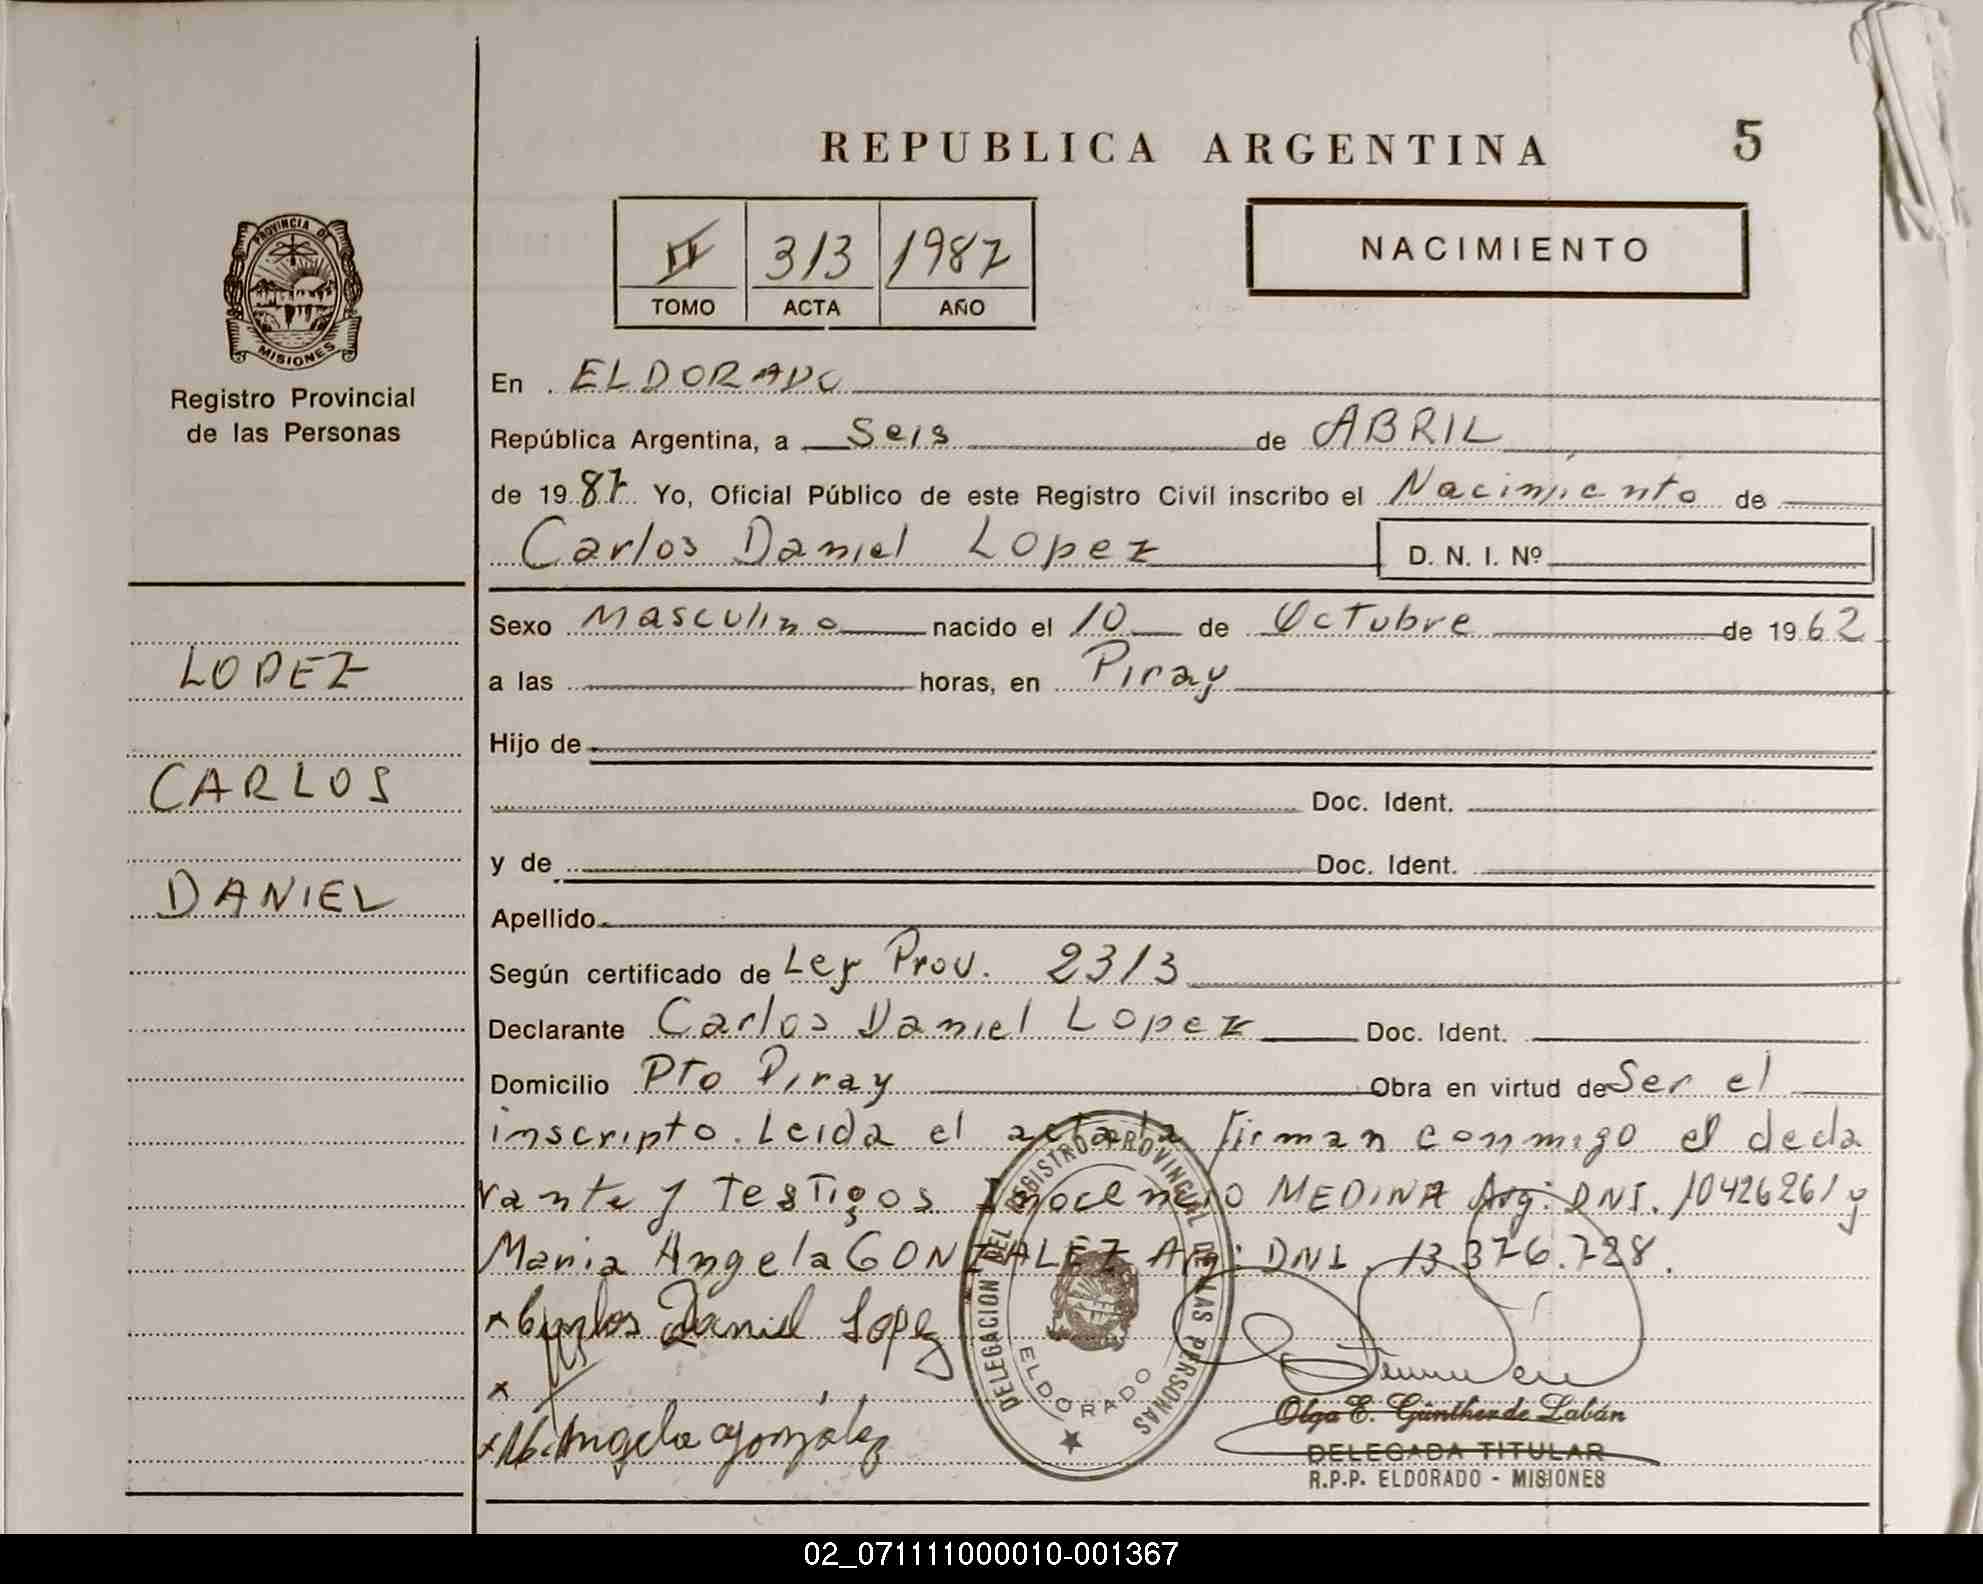 REPUBLICA ARGENTINA
5
PROVINCIA DE
MISIONES
Registro Provincial
de las Personas
II 313 1987
TOMO ACTA AÑO
NACIMIENTO
En ELDORADO
República Argentina, a Seis de ABRIL
de 1987 Yo, Oficial Público de este Registro Civil inscribo el Nacimiento de
Carlos Daniel Lopez D. N. I. Nº
Sexo Masculino nacido el 10 de Octubre de 1962
a las horas, en Piray
Hijo de
Doc. Ident.
y de Doc. Ident.
Apellido
Según certificado de Ley Prov. 2313
Declarante Carlos Daniel Lopez Doc. Ident.
Domicilio Pto Piray Obra en virtud de Ser el
inscripto. Leida el acta la firman conmigo el decla
rante y Testigos Inocencio MEDINA Arg: DNI. 10426261 y
Maria Angela GONZALEZ Arg: DNI. 13 376.728.
x Carlos Daniel Lopez
x
x M. Angela González
LOPEZ
CARLOS
DANIEL
DELEGACION DEL REGISTRO PROVINCIAL DE LAS PERSONAS
ELDORADO
Olga E. Günther de Labán
DELEGADA TITULAR
R.P.P. ELDORADO - MISIONES
02_071111000010-001367